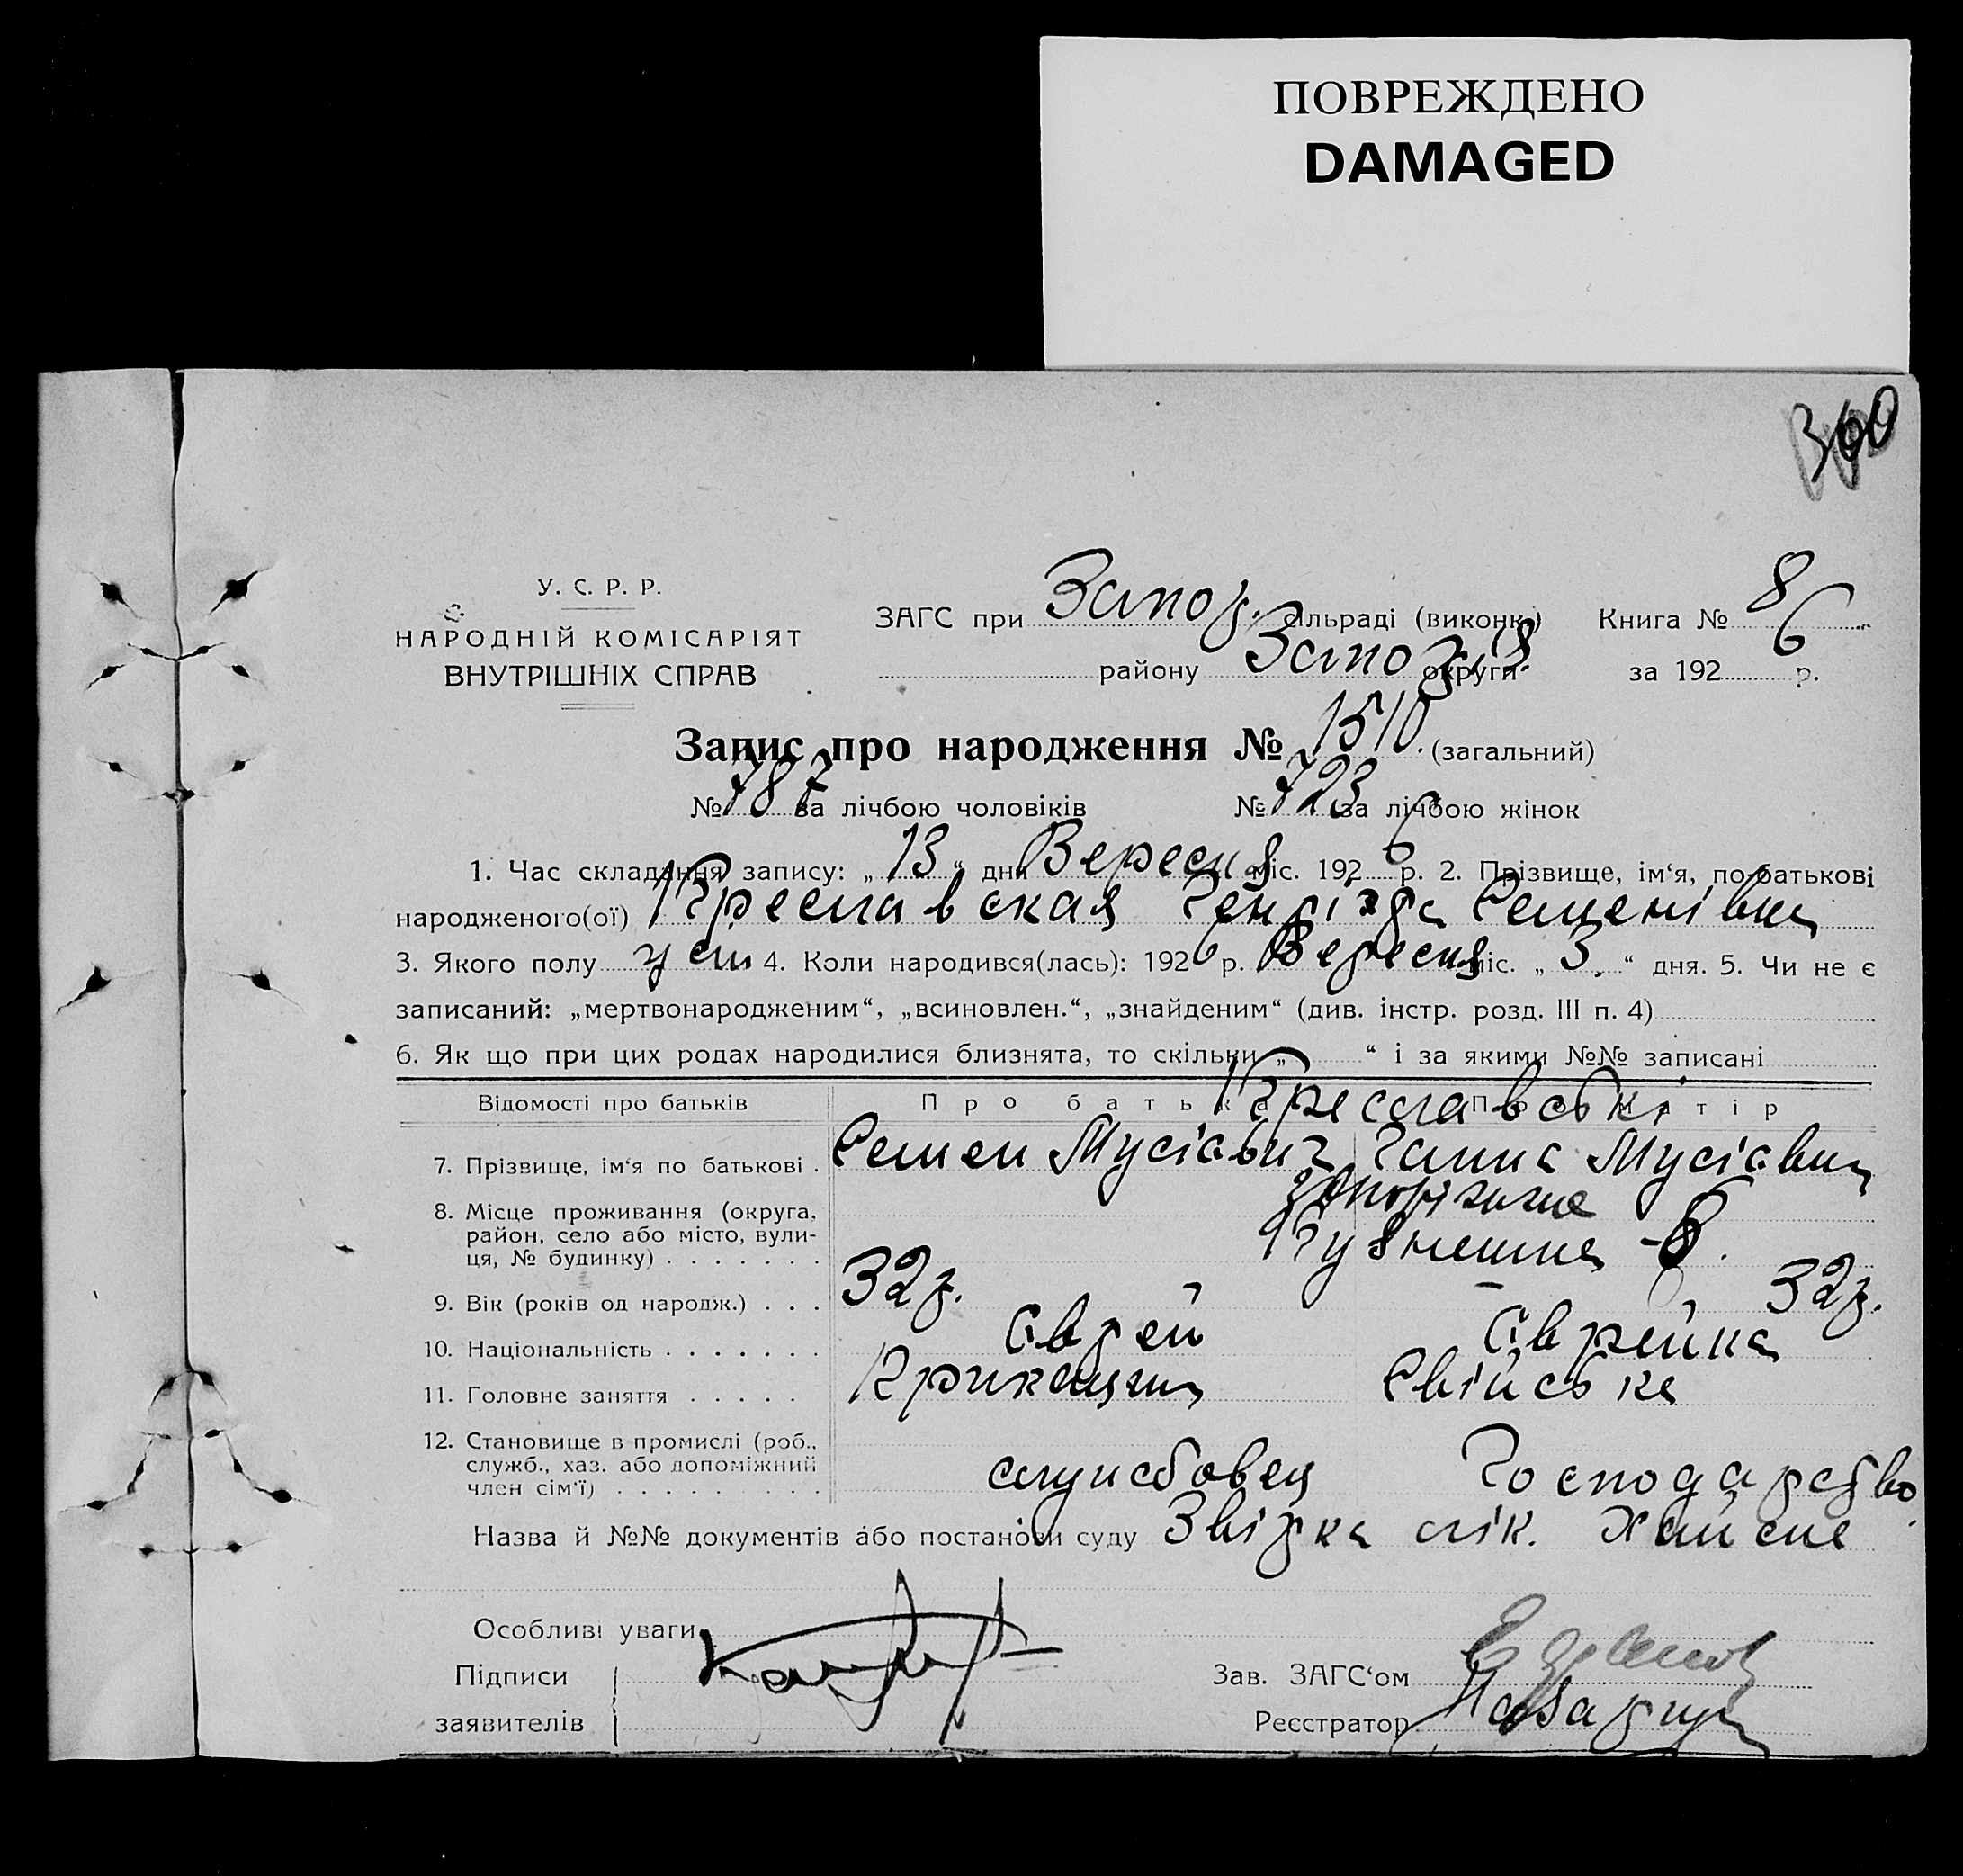 ПОВРЕЖДЕНО
DAMAGED
360
У. С. Р. Р.
НАРОДНІЙ КОМІСАРІЯТ
ВНУТРІШНІХ СПРАВ
ЗАГС при Запор. сільраді (виконк.) Книга № 8
району Запор. округи за 1926 р.
Запис про народження № 1510. (загальний)
№ 787 за лічбою чоловіків № 723 за лічбою жінок
1. Час складання запису: „13“ дня Вересня міс. 1926 р. 2. Прізвище, ім‘я, по-батькові
народженого(ої) Креславская Семенівна
3. Якого полу 4. Коли народився(лась): 1926 р. Вересня міс. „3.“ дня. 5. Чи не є
записаний: „мертвонародженим“, „всиновлен.“, „знайденим“ (див. інстр. розд. III п. 4)
6. Як що при цих родах народилися близнята, то скільки „ “ і за якими №№ записані
Відомості про батьків Про батька Про матір
Креславські
7. Прізвище, ім‘я по батькові . Семен Мусіович Ганна Мусіовна
8. Місце проживання (округа, Запоріжжє
район, село або місто, вули-
ця, № будинку) . . . . . . .
9. Вік (років од народж.) . . . 32 р. – 32 р.
10. Національність . . . . . . . Єврей Єврейка
11. Головне заняття . . . . . Прикащик Свійське
12. Становище в промислі (роб.,
служб., хаз. або допоміжний службовец Господарство
член сім‘ї) . . . . . . . . .
Назва й №№ документів або постанови суду Звірка лік.
Особливі уваги
Підписи
Зав. ЗАГС‘ом
заявителів
Реєстратор